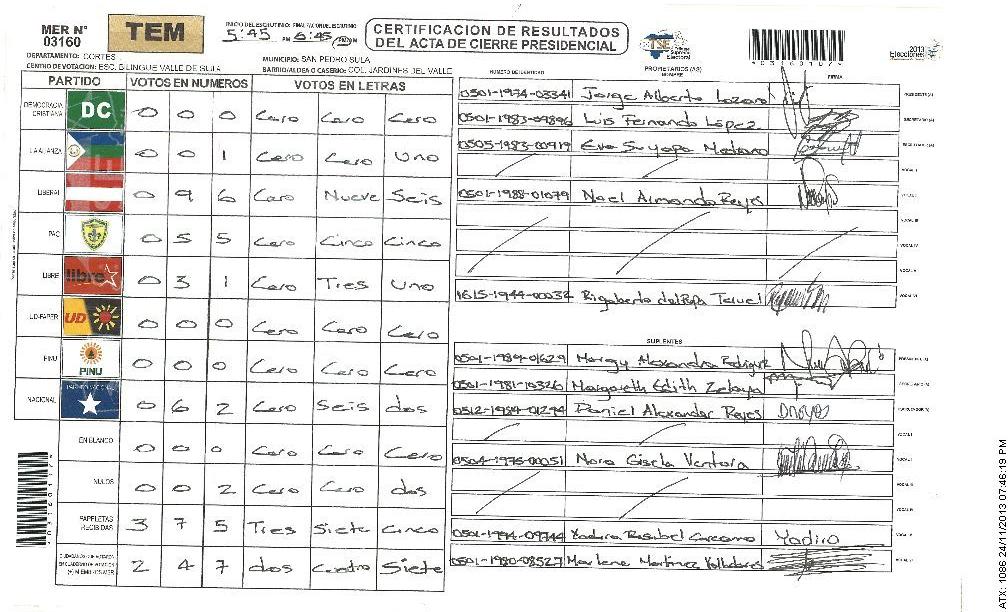 MER N° 03160
TEM
INICIO DEL ESCRUTINIO: FINALIZACION DEL ESCRUTINIO
5:45 PM 6:45
CERTIFICACION DE RESULTADOS
DEL ACTA DE CIERRE PRESIDENCIAL
TSE Tribunal Supremo Electoral
2013 Elecciones
DEPARTAMENTO: CORTES
MUNICIPIO: SAN PEDRO SULA
CENTRO DE VOTACION: ESC. BILINGUE VALLE DE SULA
BARRIO/ALDEA O CASERIO: COL. JARDINES DEL VALLE
PARTIDO VOTOS EN NUMEROS VOTOS EN LETRAS
DEMOCRACIA CRISTIANA DC 0 0 0 Cero Cero Cero
LA ALIANZA 0 0 1 Cero Cero Uno
LIBERAL 0 9 6 Cero Nueve Seis
PAC 0 5 5 Cero Cinco Cinco
LIBRE libre 0 3 1 Cero Tres Uno
UD-FAPER UD 0 0 0 Cero Cero Cero
PINU PINU 0 0 0 Cero Cero Cero
NACIONAL 0 6 2 Cero Seis dos
EN BLANCO 0 0 0 Cero Cero Cero
NULOS 0 0 2 Cero Cero dos
PAPELETAS RECIBIDAS 3 7 5 Tres Siete Cinco
2 4 7 dos Cuatro Siete
NUMERO DE IDENTIDAD PROPIETARIOS (AS) NOMBRE FIRMA
0501-1974-03341 Jorge Alberto Lozano PRESIDENTE(A)
0501-1983-09896 Luis Fernando López SECRETARIO (A)
0505-1983-00919 Eva Suyapa Medrano ESCRUTADOR(A)
VOCAL I
0501-1988-01079 Noel Armando Reyes VOCAL II
VOCAL III
VOCAL IV
VOCAL V
1615-1944-00034 Rigoberto del Pepa Teruel VOCAL VI
SUPLENTES
0501-1989-01629 Margy Alexandra Rodriguez PRESIDENTE(A)
0501-1981-10326 Margareth Edith Zelaya SECRETARIO (A)
0512-1984-01274 Daniel Alexander Reyes DReyes ESCRUTADOR(A)
VOCAL I
0504-1975-00051 Nora Gisela Ventura VOCAL II
VOCAL III
VOCAL IV
0501-1994-09744 Yadira Rosibel Carcamo Yadira VOCAL V
0501-1980-08527 Marlene Martinez Valladares VOCAL VI
ATX: 1086 24/11/2013 07:46:19 PM